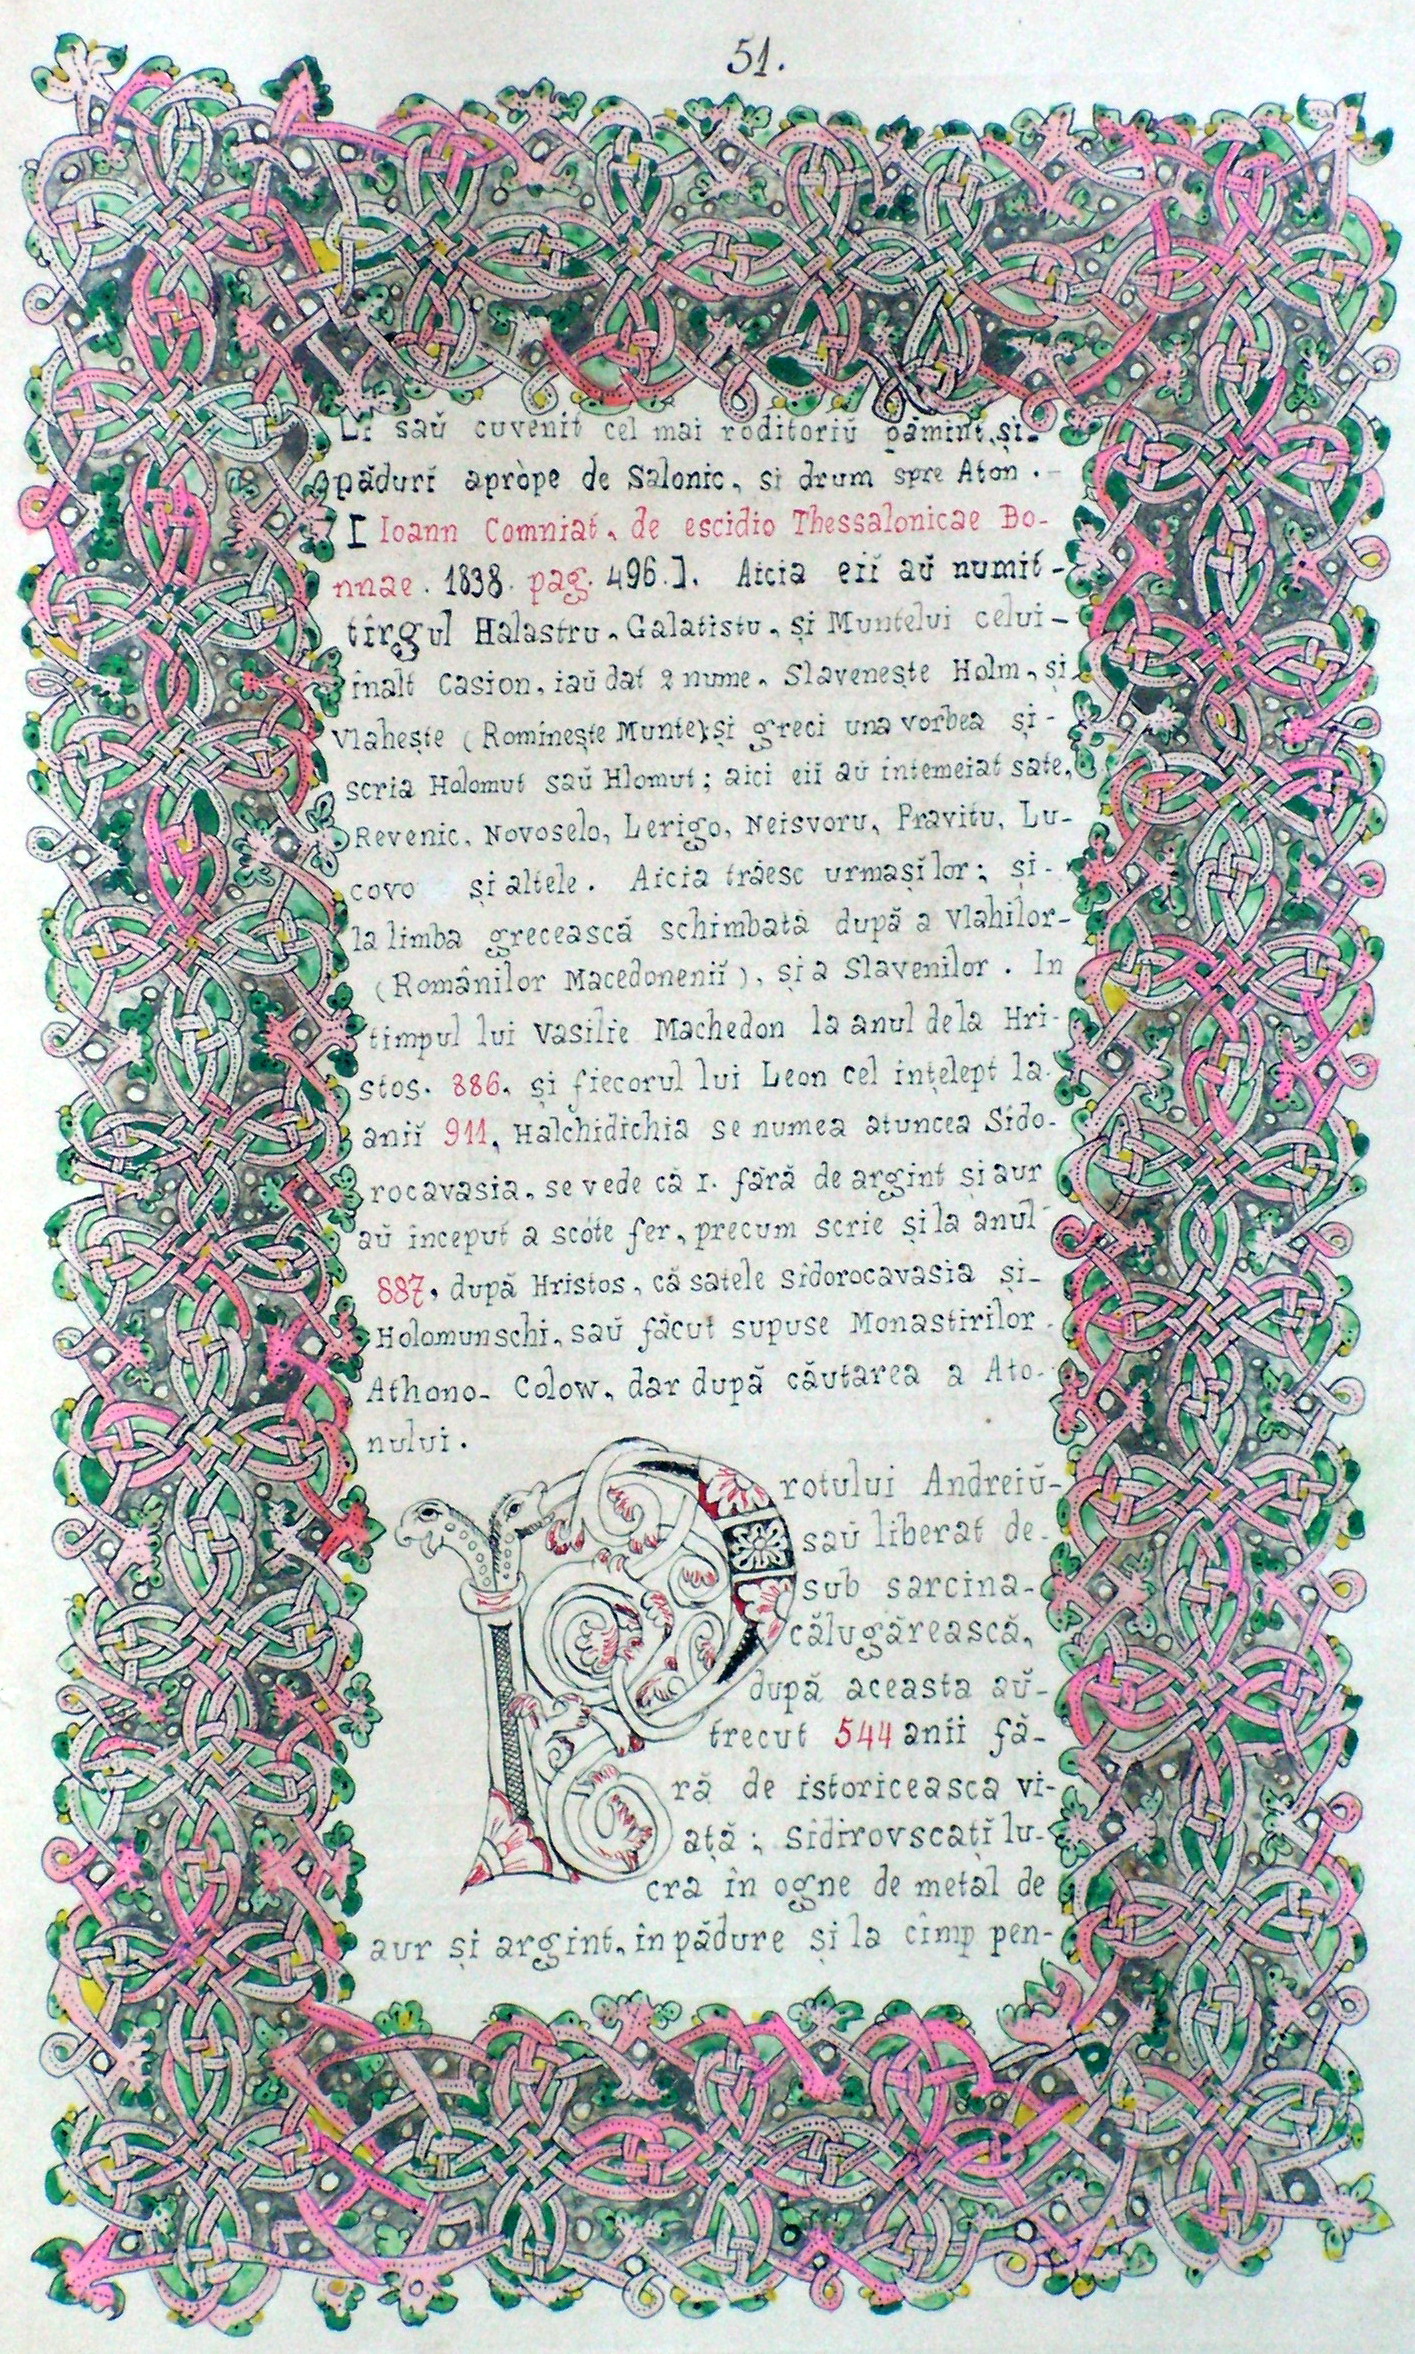 51.
Li saŭ cuvenit cel mai roditoriŭ pamint, și-
păduri apròpe de Salonic, si drum spre Aton.-
[ Ioann Comniat, de escidio Thessalonicae Bo-
nnae. 1838. pag. 496.]. Aicia eiĭ aŭ numit-
tîrgul Halastru, Galatistu, și Muntelui celui-
inalt Casion, iaŭ dat 2 nume, Slavenește Holm, și
Vlahește (Rominește Munte) și greci una vorbea și-
scria Holomut saŭ Hlomut; aici eiĭ aŭ intemeiat sate,
Revenic, Novoselo, Lerigo, Neisvoru, Pravitu, Lu-
covo și altele. Aicia trăesc urmași lor; și-
la limba grecească schimbată după a vlahilor-
(Românilor Macedoneniĭ), și a Slavenilor. In
timpul lui Vasilie Machedon la anul dela Hri-
stos. 886, și fiecorul lui Leon cel ințelept la-
aniĭ 911, Halchidichia se numea atuncea Sido-
rocavasia, se vede că I. fără de argint și aur
aŭ inceput a scóte fer, precum scrie și la anul-
887, după Hristos, că satele sidorocavasia și-
Holomunschi, saŭ făcut supuse Monastirilor.
Athono- Colow, dar după căutarea a Ato-
nului.
Protului Andreiŭ-
saŭ liberat de-
sub sarcina-
călugărească,
după aceasta aŭ-
trecut 544 anii fă-
ră de istoriceasca vi-
ață; Sidirovscațĭ lu-
cra în ogne de metal de
aur și argint, în pădure și la cîmp pen-